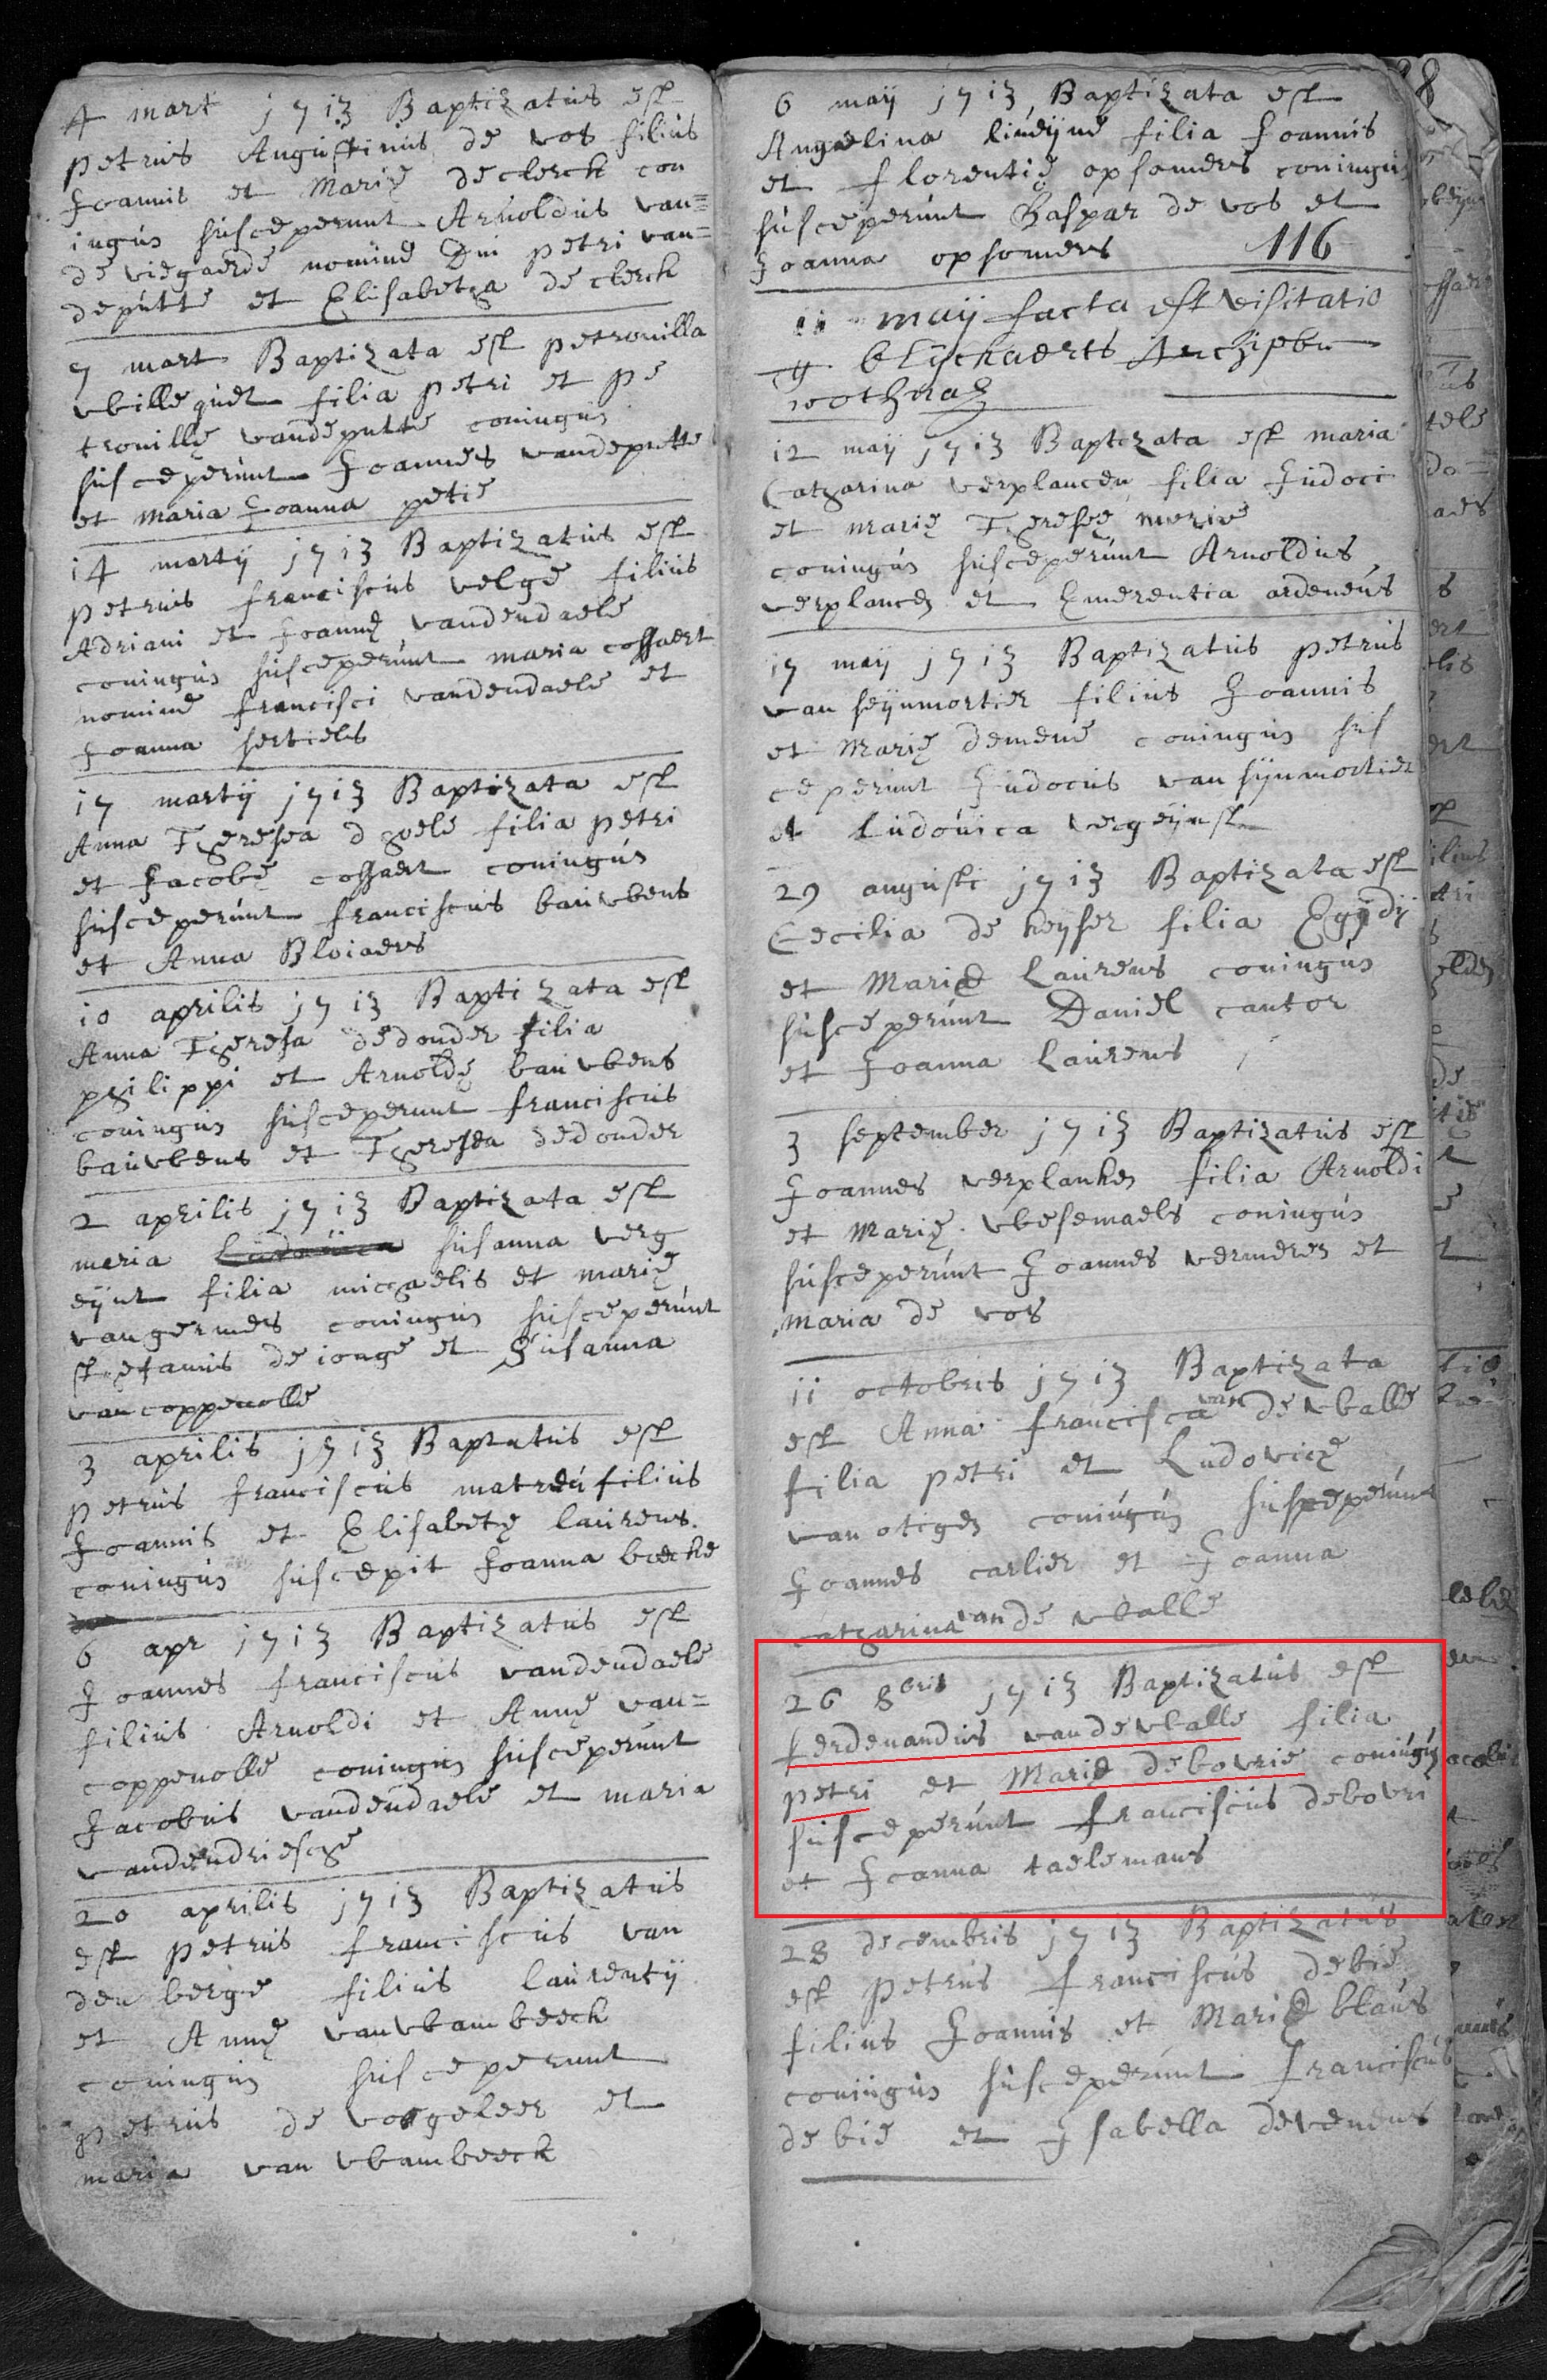 4 mart 1713 Baptizatus est
petrus Augustinus de vos filius
Joannis et Marię declerck con
iugus susceperunt Arnoldus van=
de viegaerde nomine Dni petri van=
deputte et Elisabetha de clerck
7 mart Baptizata est petronilla
filia petri et pe
tronillę vandeputte coniugus
susceperunt Joannes vandeputte
et maria Joanna petie
14 martij 1713 Baptizatus est
petrus franciscus velge filius
Adriani et Joannę vandendaele
coniugus susceperunt maria cossaert
nomine francisci vandendaele et
Joanna
17 martij 1713 Baptizata est
Anna Theresea dhoele filia petri
et Jacobę cossaert coniugus
susceperunt franciscus bauwens
et Anna Bloiaers
10 aprilis 1713 Baptizata est
Anna Theresa dedonder filia
philippi et Arnoldę bauwens
coniugus susceperunt franciscus
bauwens et Theresea dedonder
2 aprilis 1713 Baptizata est
maria susanna verg
eynt filia michaelis et marię
vanhermes coniugus susceperunt
stefanus de ionge et Susanna
vancoppenolle
3 aprilis 1713 Baptatus est
petrus franciscus matreu filius
Joannis et Elisabetę laurens.
coniugus suscepit Joanna boecke
6 apr 1713 Baptizatus est
Joannes franciscus vandendaele
filius Arnoldi et Annę van=
coppenolle coniugus susceperunt
Jacobus vandendaele et maria
vandendriesche
20 aprilis 1713 Baptizatus
est petrus franciscus van
den berge filius laurentij
et Annę vanwambeeck
coniugus susceperunt
petrus de vogeleer et
maria van wambeeck
6 maij 1713, Baptizata est
Angelina lineijne filia Joannis
et florentię opsomers coniugus
susceperunt Gaspar de vos et
Joanna opsomers 116
11 maij facta est visitatio
blijckaerts Archipbri
rothnaz
12 maij 1713 Baptizata est maria
Catharina verplancen filia Judoci
et marię Theresę
coniugus susceperunt Arnoldus
verplancen et Emerentia ardeneus
17 maij 1713 Baptizatus petrus
van seijnmortier filius Joannis
et Marię demene coniugus sus
ceperunt Judocus van sijnmortier
et ludovica vergeijnst
29 augusti 1713 Baptizata est
Cecilia de keyser filia Egijdij
et Marię laurens coniugus
susceperunt Daniel cantor
et Joanna laurens
3 september 1713 Baptizatus est
Joannes verplanken filia Arnoldi
et Marię wesemaels coniugus
susceperunt Joannes vermeren et
maria de vos
11 octobris 1713 Baptizata
est Anna francisca van de walle
filia petri et Ludovicę
van otigen coniugus suspeperunt
Joannes carlier et Joanna
catharina van de walle
26 8bris 1713 Baptizatus est
ferdenandus vandewalle filia
petri et Marię debovrie coniugus
susceperunt franciscus debovri
et Joanna taelemans
28 decembris 1713 Baptizatus
est petrus franciscus debie
filius Joannis et Marię blaus
coniugus susceperunt franciscus
debie et Isabella devenens